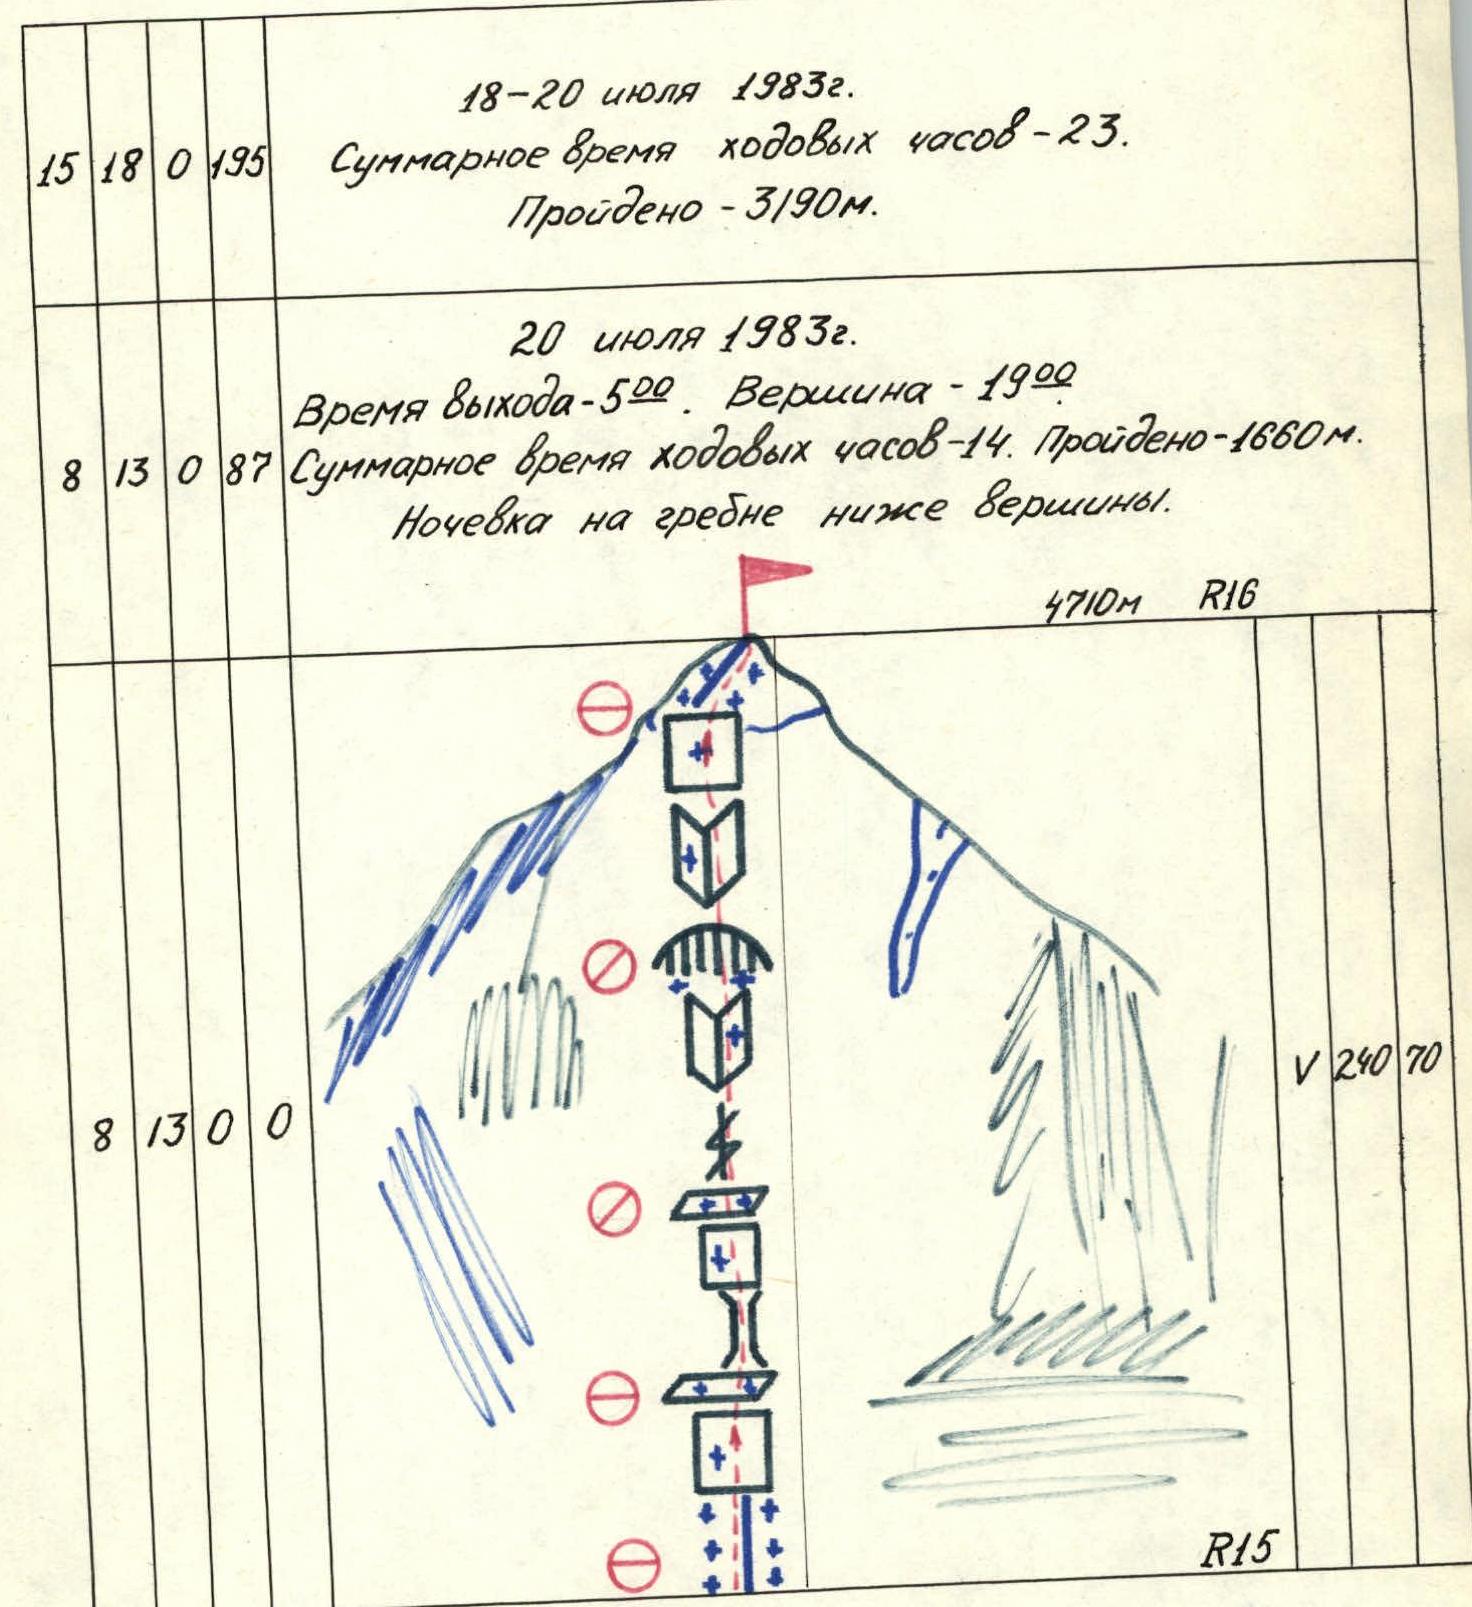 18-20 июля 1983г.
15 18 0 195 Суммарное время ходовых часов - 23.
Пройдено - 3190м.
20 июля 1983г.
Время выхода - 5⁰⁰. Вершина - 19⁰⁰.
8 13 0 87 Суммарное время ходовых часов - 14. Пройдено - 1660м.
Ночевка на гребне ниже вершины.
4710м R16
8 13 0 0 V 240 70
R15